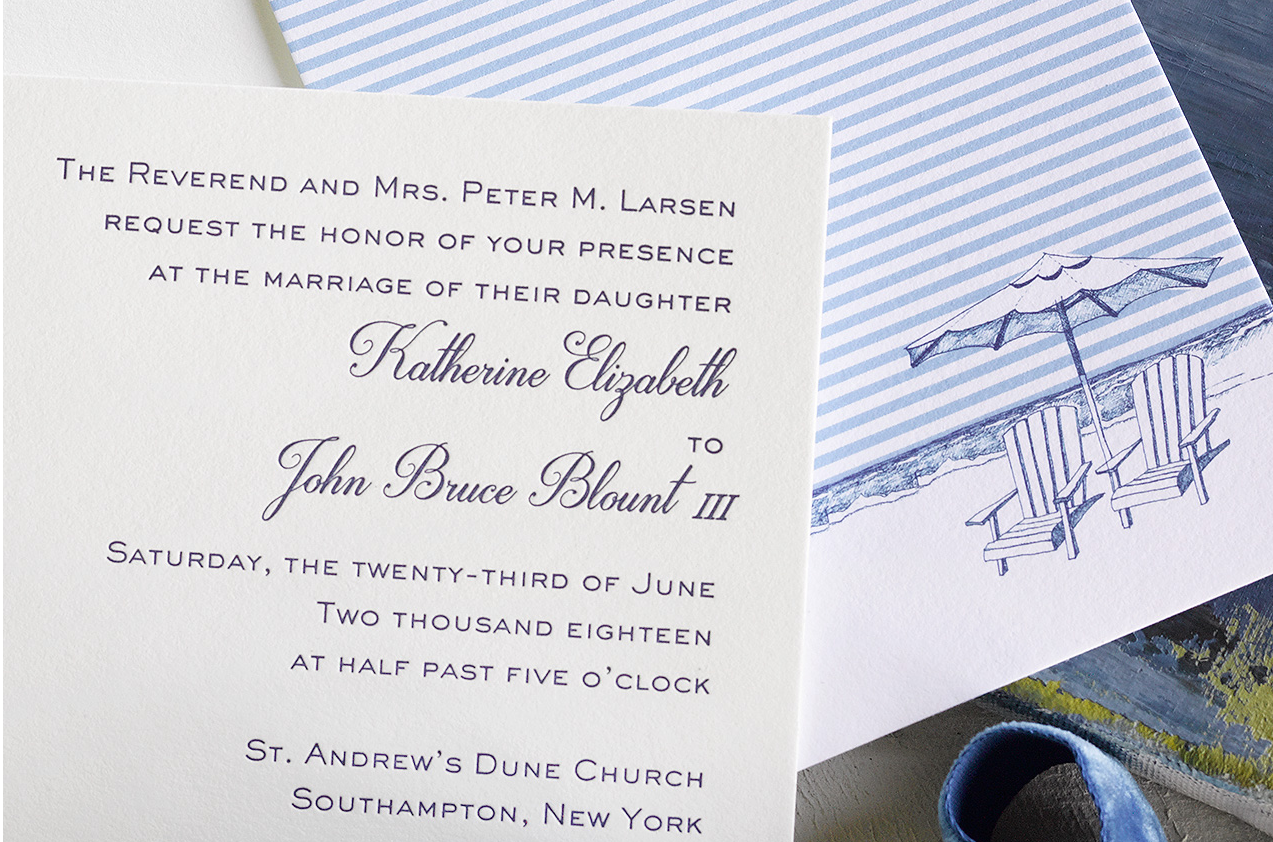 The Reverend and Mrs. Peter M. Larsen
request the honor of your presence
at the marriage of their daughter
Katherine Elizabeth
to
John Bruce Blount III
Saturday, the twenty-third of June
Two thousand eighteen
at half past five o'clock
St. Andrew's Dune Church
Southampton, New York